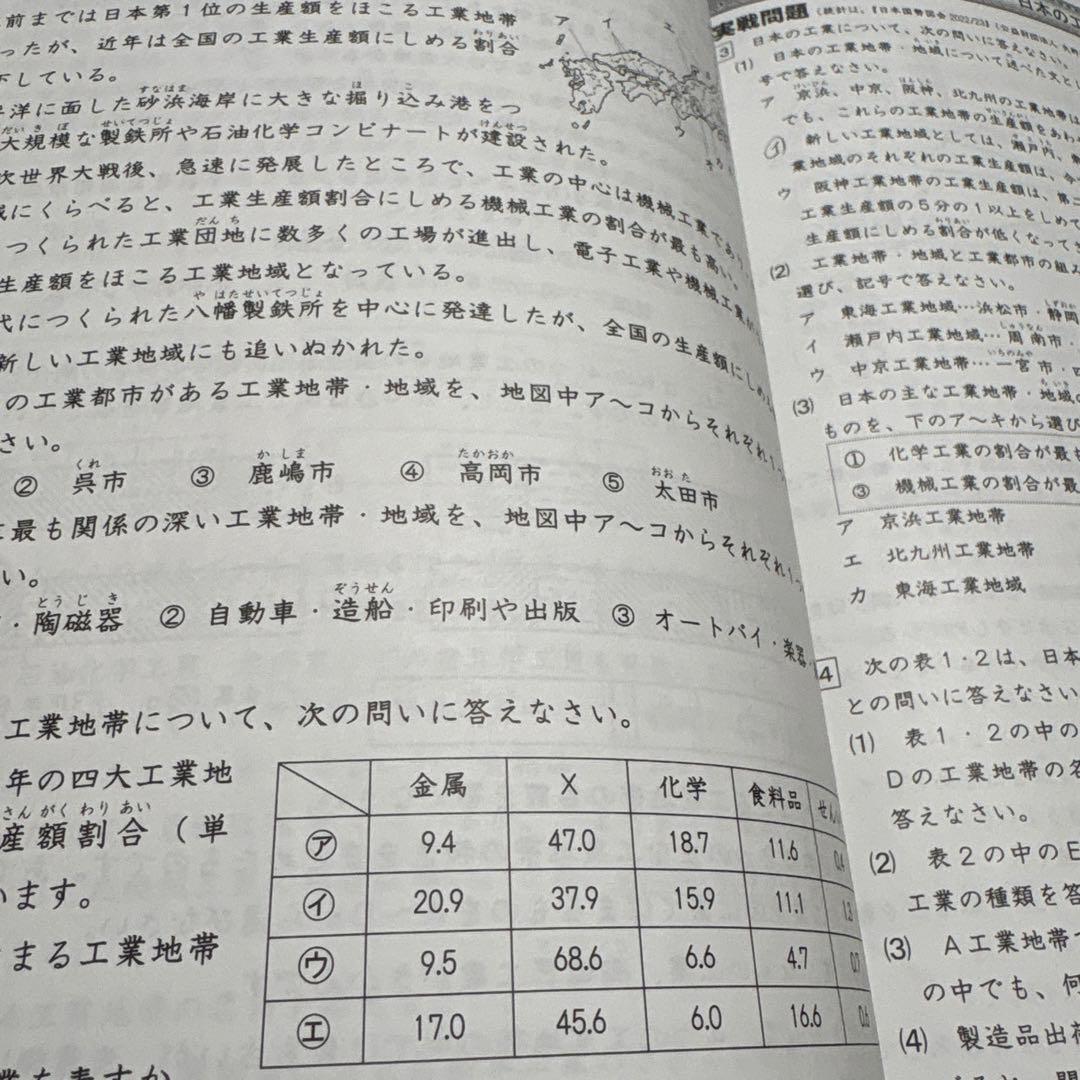 前までは日本第1位の生産額をほこる工業地帯
ったが、近年は全国の工業生産額にしめる割合
下している。
洋に面した砂浜海岸に大きな掘り込み港をつ
大規模な製鉄所や石油化学コンビナートが建設された。
次世界大戦後、急速に発展したところで、工業の中心は機械工業であり、
域にくらべると、工業生産額割合にしめる機械工業の割合が最も高い。
つくられた工業団地に数多くの工場が進出し、電子工業や機械工業が
生産額をほこる工業地域となっている。
代につくられた八幡製鉄所を中心に発達したが、全国の生産額にしめ
新しい工業地域にも追いぬかれた。
の工業都市がある工業地帯・地域を、地図中ア～コからそれぞれ1つ
さい。
② 呉市 ③ 鹿嶋市 ④ 高岡市 ⑤ 太田市
最も関係の深い工業地帯・地域を、地図中ア～コからそれぞれ1つ
い。
・陶磁器 ② 自動車・造船・印刷や出版 ③ オートバイ・楽器
工業地帯について、次の問いに答えなさい。
年の四大工業地
産額割合(単
います。
まる工業地帯
業を表すか
金属 X 化学 食料品 せん
㋐ 9.4 47.0 18.7 11.6 0.4
㋑ 20.9 37.9 15.9 11.1 1.3
㋒ 9.5 68.6 6.6 4.7 0.7
㋓ 17.0 45.6 6.0 16.6 0.6
ア イ エ
ウ
日本の工
実戦問題 (統計は、『日本国勢図会2022/23』
3 日本の工業について、次の問いに答えなさい。
(1) 日本の工業地帯・地域について述べた文と
号で答えなさい。
ア 京浜、中京、阪神、北九州の工業地帯は
でも、これらの工業地帯の生産額をあわ
イ 新しい工業地域としては、瀬戸内、東
業地域のそれぞれの工業生産額は、今
ウ 阪神工業地帯の工業生産額は、第二
工業生産額の5分の1以上をしめて
生産額にしめる割合が低くなって
(2) 工業地帯・地域と工業都市の組み
選び、記号で答えなさい。
ア 東海工業地域…浜松市・静岡
イ 瀬戸内工業地域…周南市・
ウ 中京工業地帯…一宮市・四
(3) 日本の主な工業地帯・地域の
ものを、下のア～キから選び
① 化学工業の割合が最も
③ 機械工業の割合が最
ア 京浜工業地帯
エ 北九州工業地帯
カ 東海工業地域
4 次の表1・2は、日本
との問いに答えなさい
(1) 表1・2の中の
Dの工業地帯の名
答えなさい。
(2) 表2の中のE
工業の種類を答
(3) A工業地帯で
の中でも、何
(4) 製造品出荷